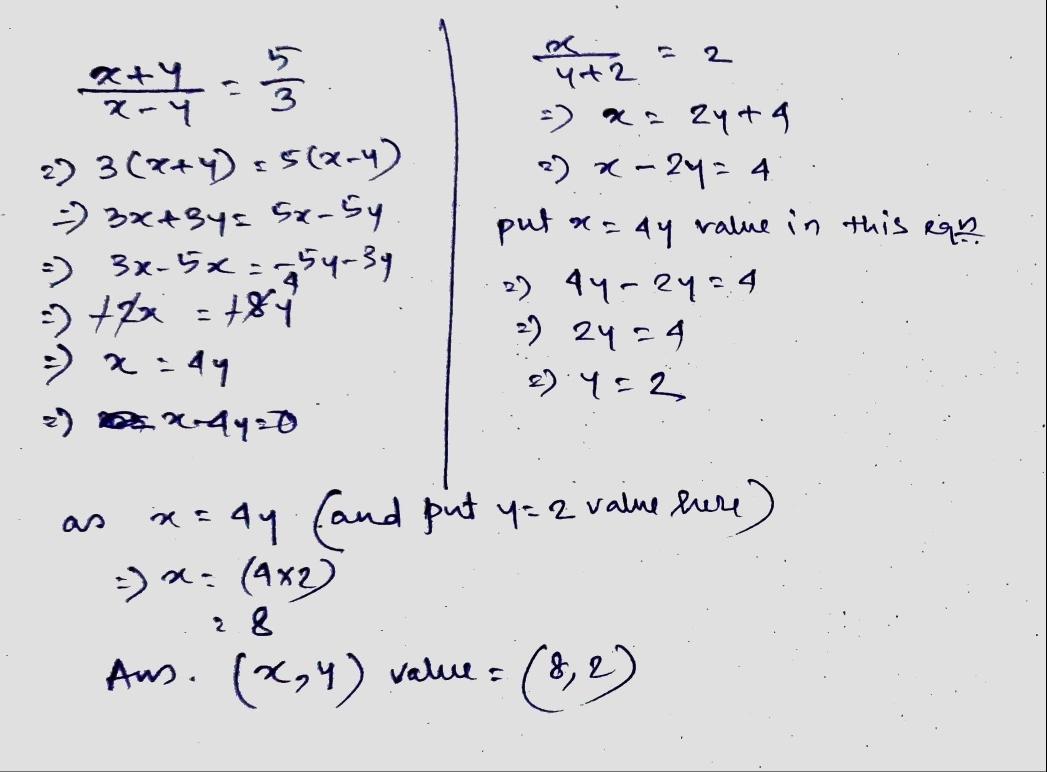 x+y / x-y = 5/3
=> 3(x+y) = 5(x-y)
=> 3x+3y = 5x-5y
=> 3x-5x = -5y-3y
=> +2x = +8y 4
=> x = 4y
=> x-4y=0
x / y+2 = 2
=> x = 2y+4
=> x-2y = 4
put x = 4y value in this eqn.
=> 4y-2y = 4
=> 2y = 4
=> y = 2
as x = 4y (and put y=2 value here)
=> x = (4×2)
= 8
Ans. (x,y) value = (8,2)